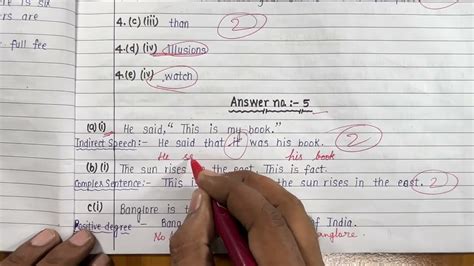 e is six
ers are
full fee
4.(c)(iii) than 2
4.(d) (iv) Illusions 2
4.(e) (iv) watch
Answer no:- 5
(a)(i) He said, "This is my book."
Indirect Speech:- He said that it was his book. 2
He sa his book
(b)(i) The sun rises the east. This is fact.
Complex Sentence:- This is the sun rises in the east. 2
c(i) Banglore is t
Positive degree :- Bang of India.
No anglore.